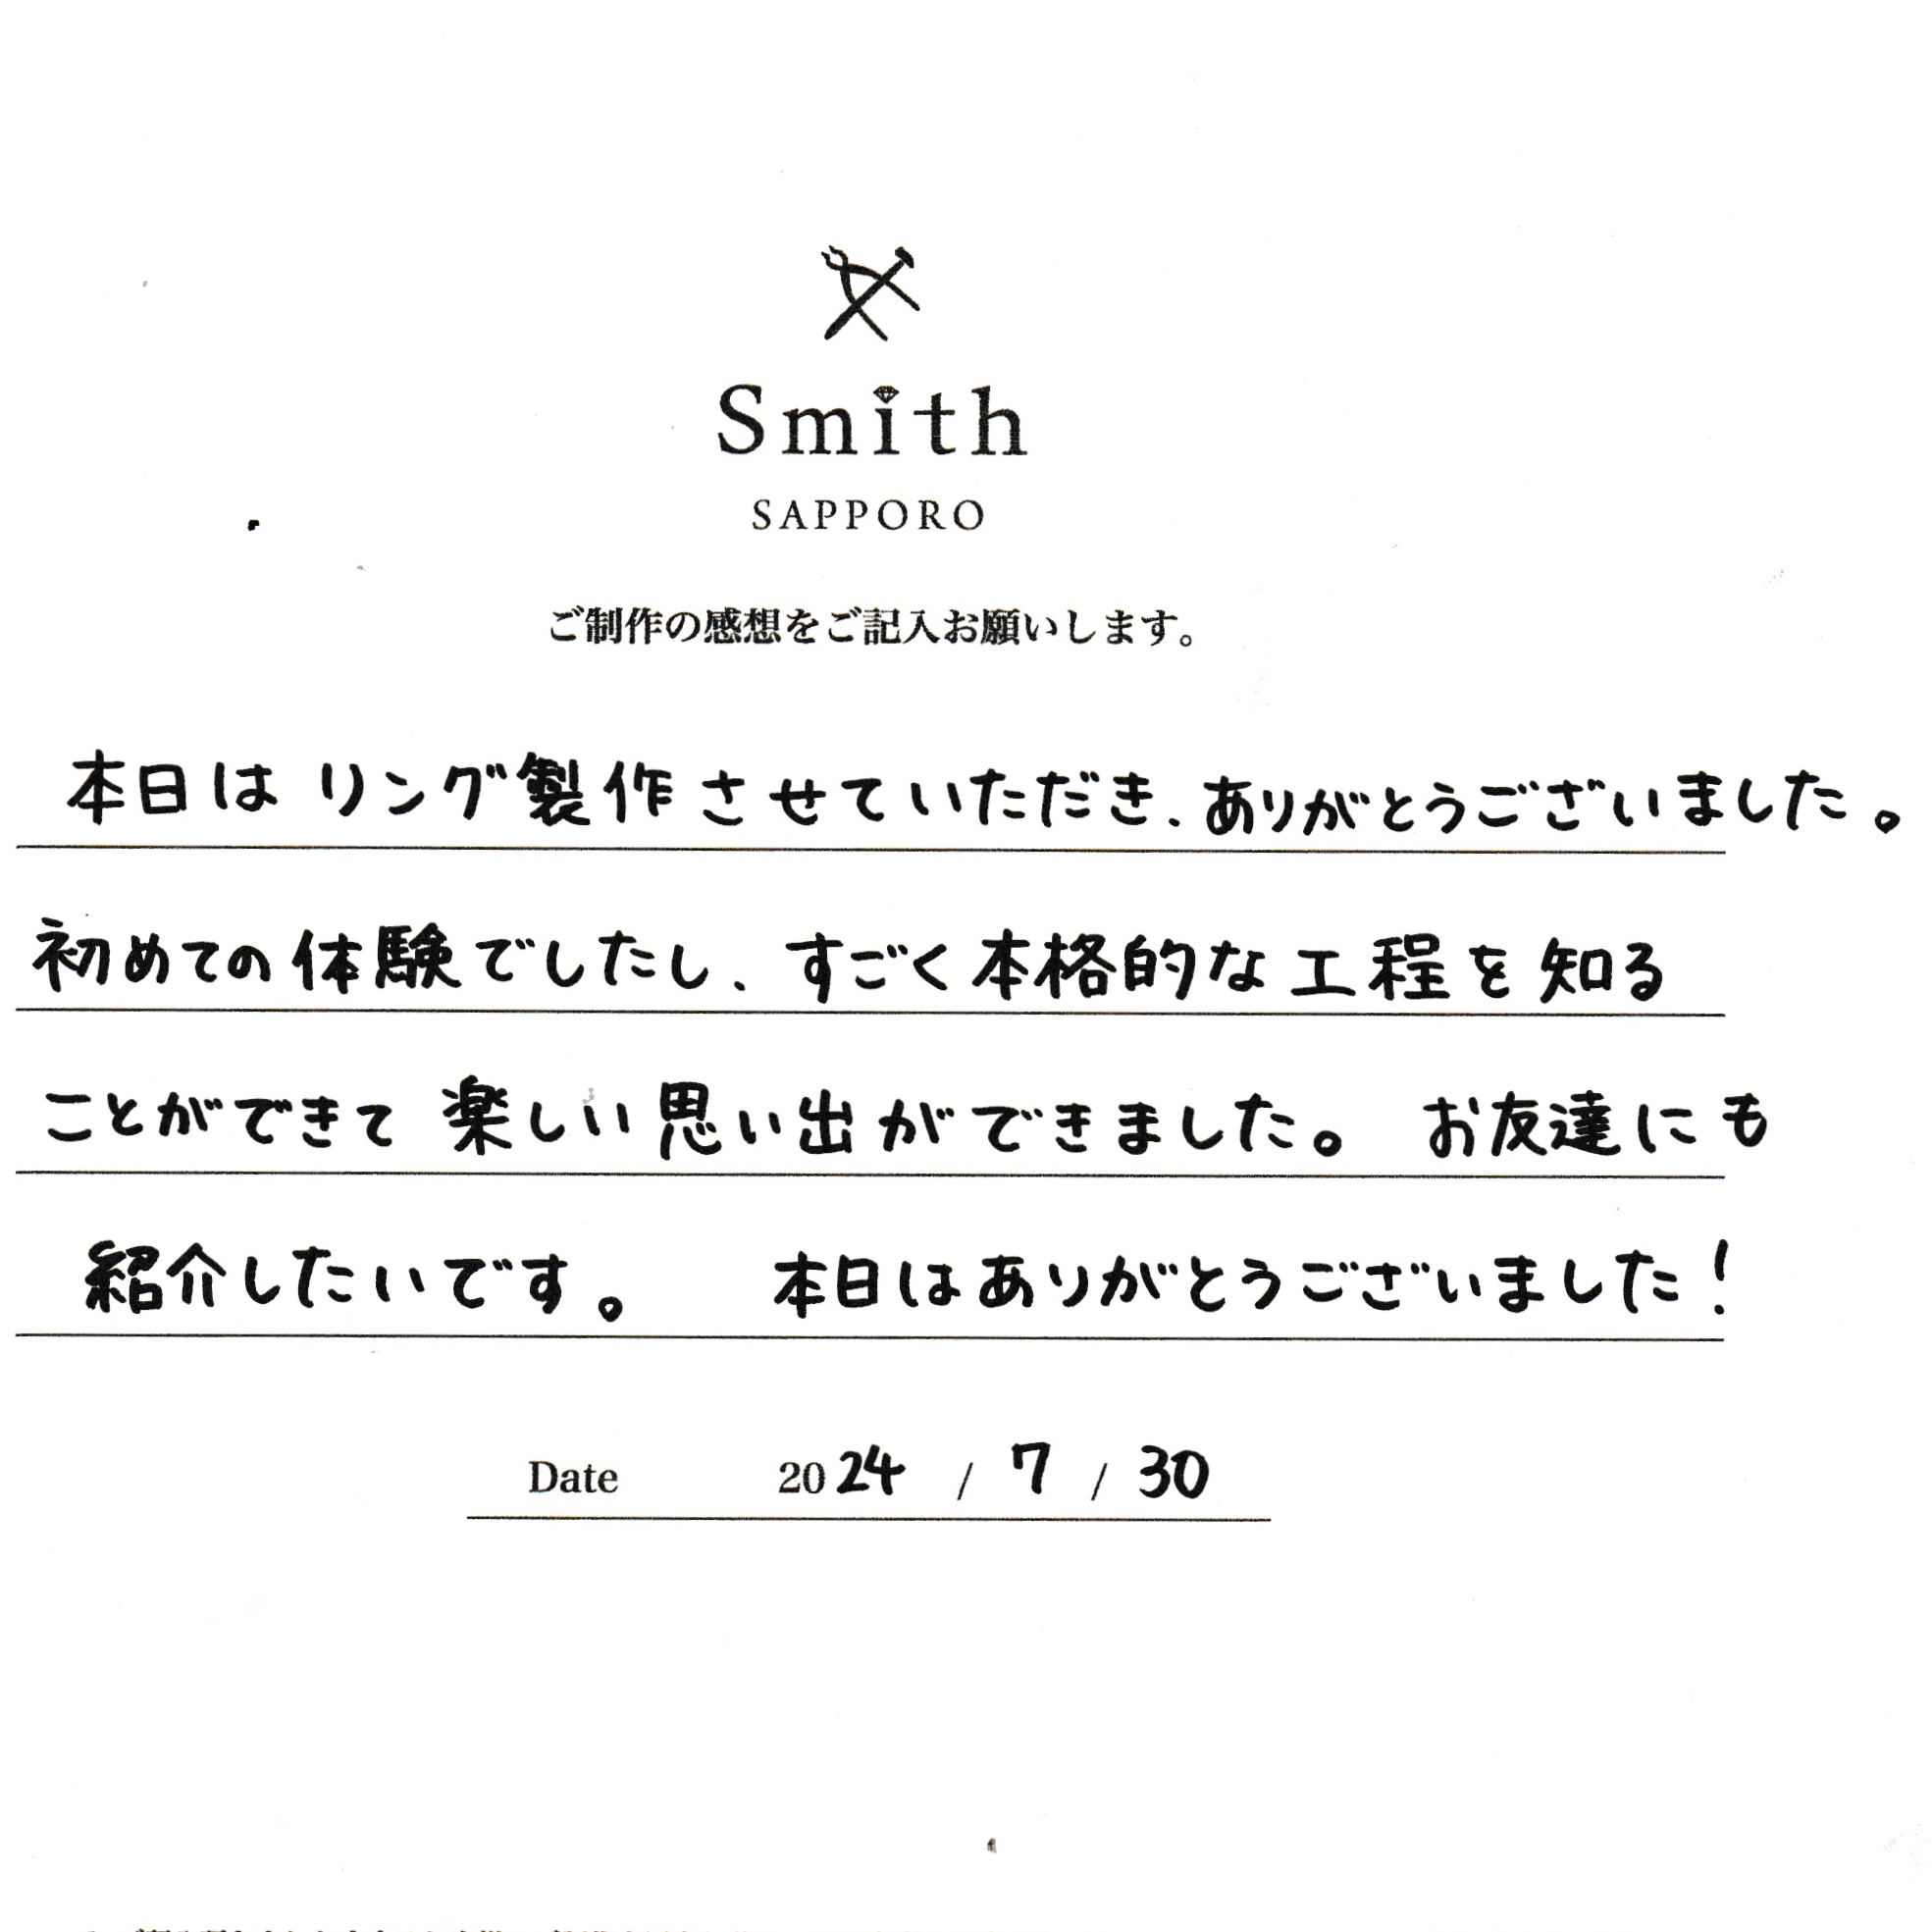 Smith
SAPPORO
ご制作の感想をご記入お願いします。
本日は リング製作させていただき、ありがとうございました。
初めての体験でしたし、すごく本格的な工程を知る
ことができて楽しい思い出ができました。 お友達にも
紹介したいです。 本日はありがとうございました!
Date 2024 / 7 / 30